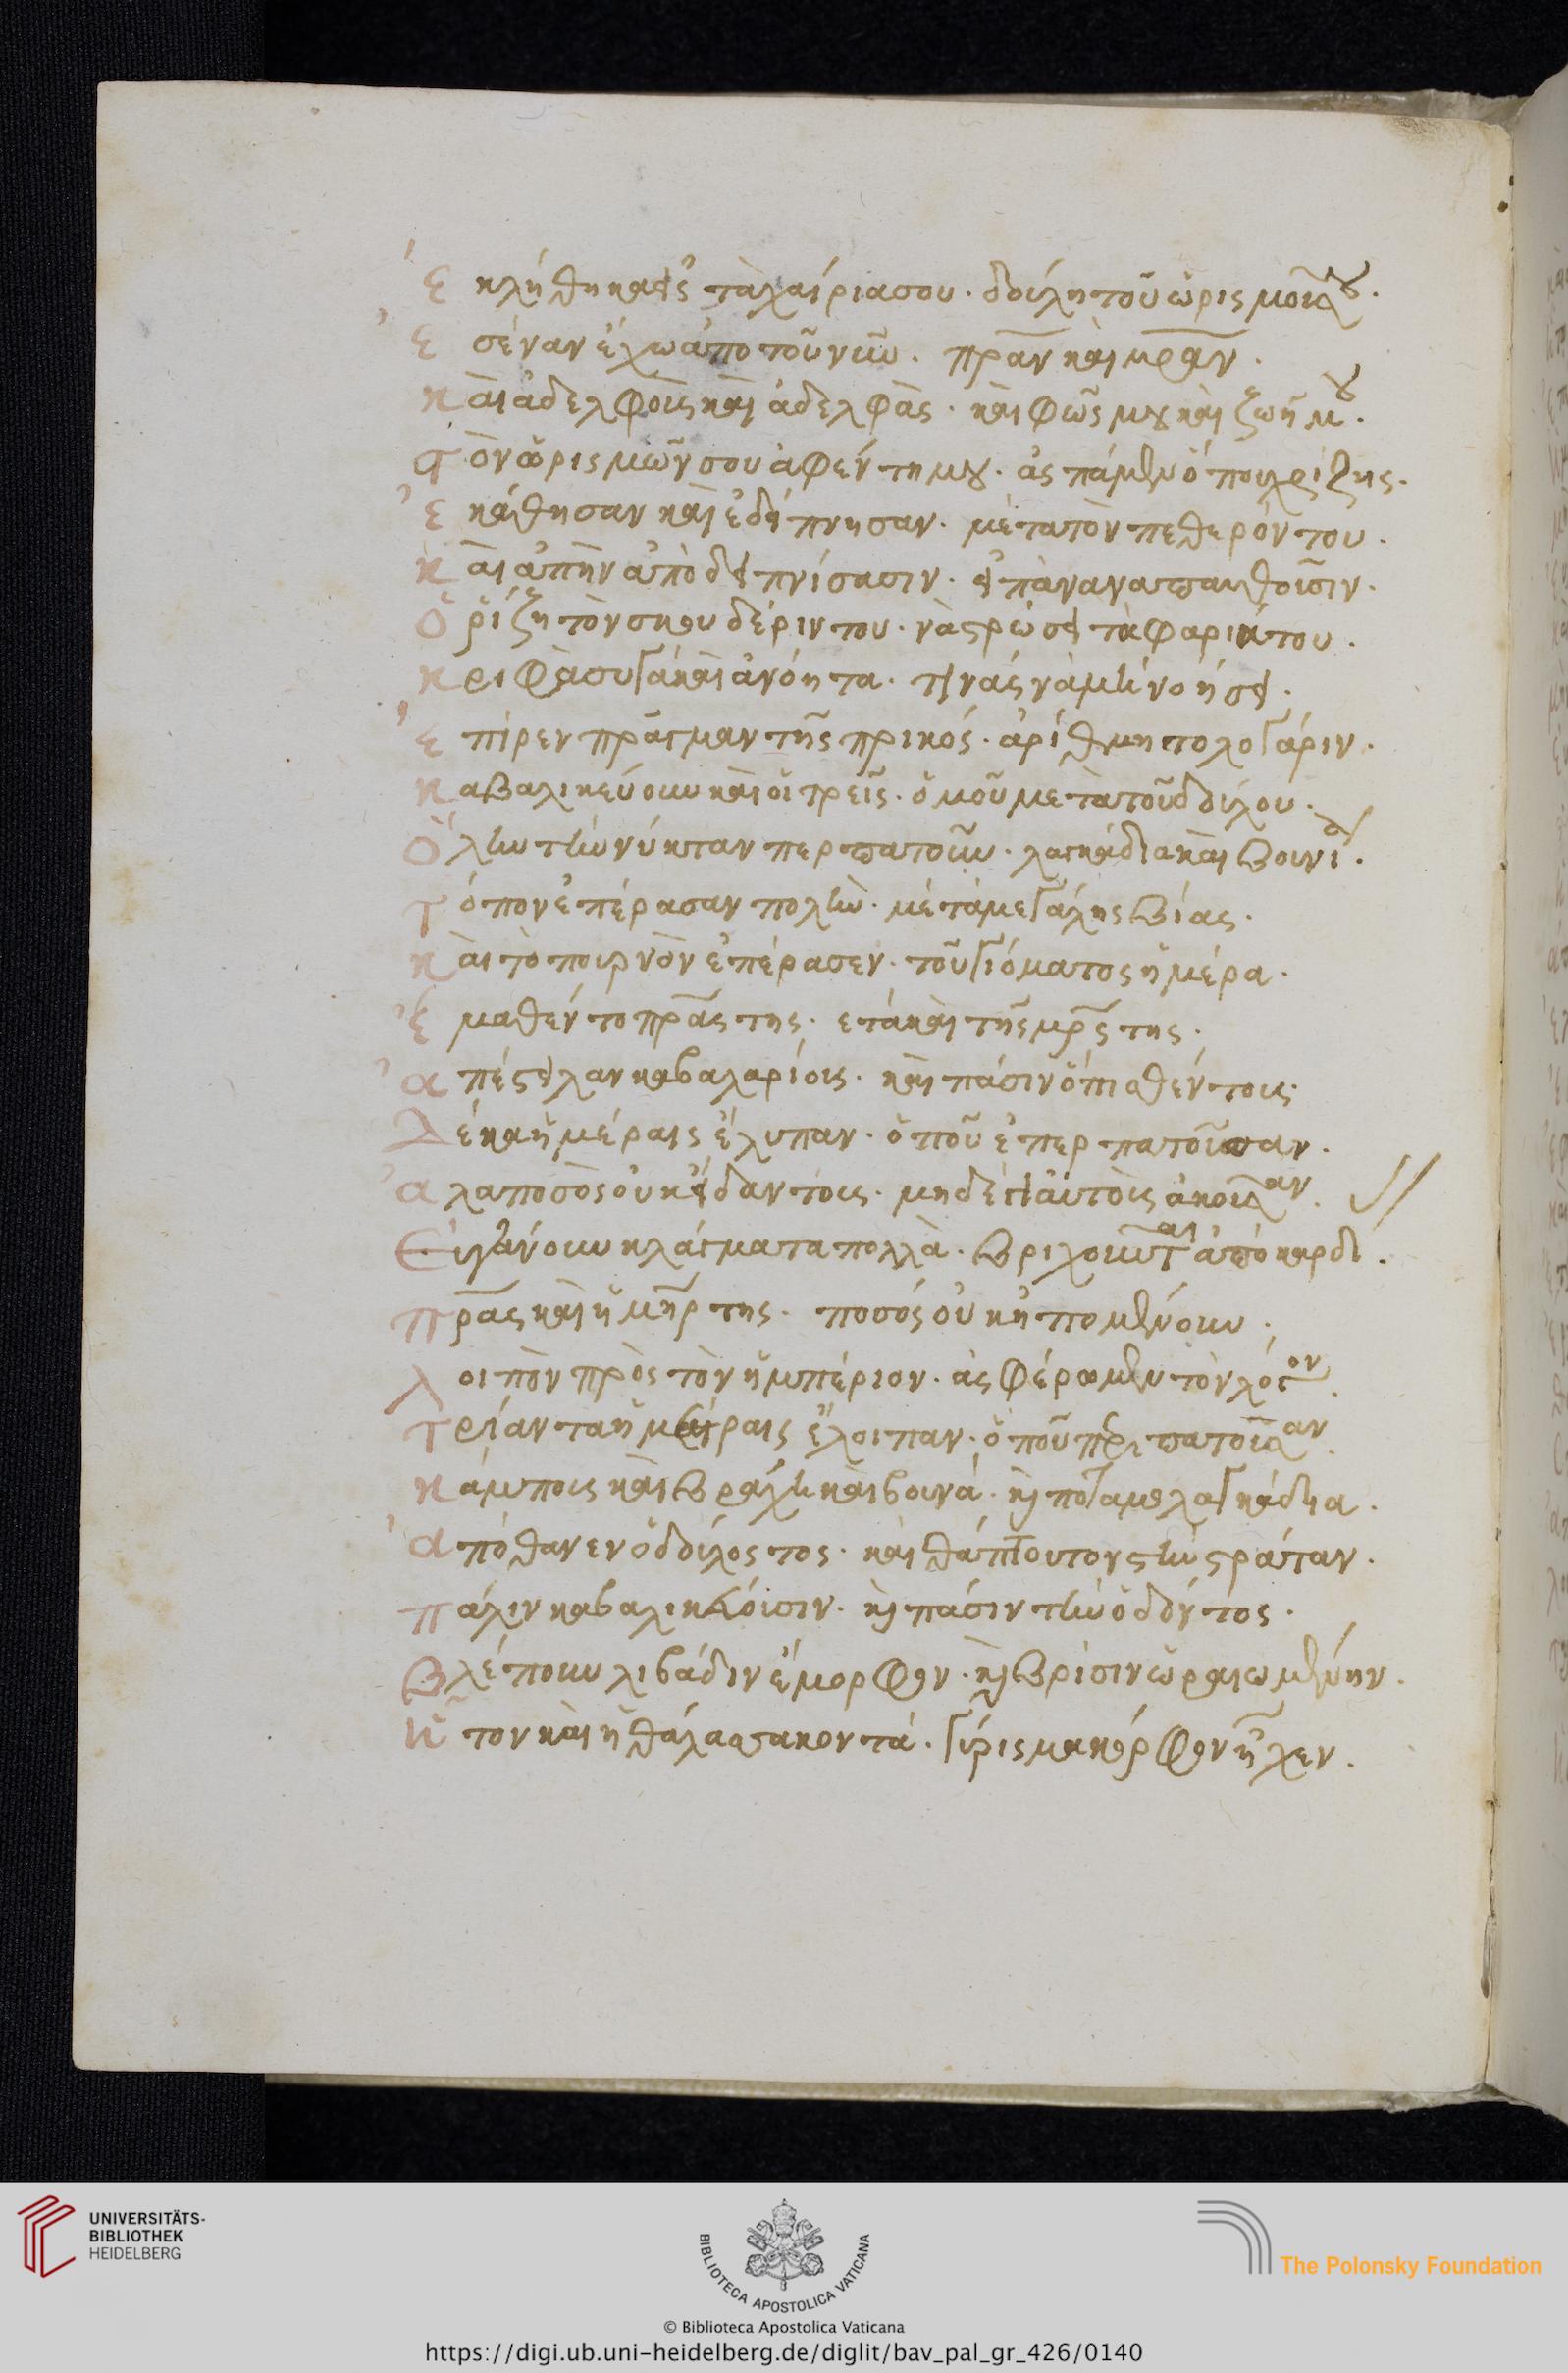 Ἐ κλήθηκα εἰς τὰ χαίρια σου. δοίλη τοῦ ὡρισμοῦ
Ἐ σέναν ἔχω ἀπὸ τοῦ νῦν. πρᾱν καὶ μρᾱν.
Κ αὶ ἀδελφοὺς καὶ ἀδελφὰς. καὶ φῶς μου καὶ ζωῆ μου.
Τ ὸν ὁρισμῶν σου ἀφέντη μου. ἀς πάμεν ὅπου
Ἐ κάθησαν καὶ ἐδήπνησαν. μὲ τα τὸν πεθερόν του.
Κ αὶ ἀπὴν ἀποδειπνίσασιν. εἰ πὰν ἀναπαυθοῦσιν.
Ὁ ρίζη τὸν σκου δέριν του. νὰ στρώσει τὰ φαριά του.
Κ ριφὰ συγὰ καὶ ἀνόητα. τινάς νὰ μὲν νοήσει.
Ἐ πῖρεν πρᾶγμαν τῆς πρικός. ἀρίθμητο λογάριν.
Κ αβαλικεύουν καὶ οἱ τρεῖς. ὁμοῦ με τὰ τοῦ δούλου.
Ὅ λην τὴν νύκταν περπατοῦν. λαγκάδια καὶ βουνι.
Τ όπον ἐπέρασαν πολὺν. μέ τὰ μεγάλης βίας.
Κ αὶ τὸ πουρνὸν ἐπέρασεν. τοῦ γιόματος ἡμέρα.
Ἐ μαθέν το πρᾱς της. ετά καὶ τῆς μρ̄ς της.
Ἀ πέστειλαν καβαλαρίους. καὶ πάσιν ὄπιαθέν τους.
Δ έκα ἡμέραις ἔλυπαν. ὁποῦ ἐπερπατοῦσαν.
Ἀ λαποσὸς οὐκ εἶδαν τους. μηδὲ εἰ αὐτοὺς ἀκουσαν
Ἐ υγάνουν κλάματα πολλὰ. βριχοῦνται ἀπὸ καρδι.
Π ρᾱς καὶ ἡ μηρ της. ποσός οὐκ ἠπομένουν.
Λ οιπὸν πρὸς τὸν ἡμπέριον. ἀς φέρωμεν τὸν λόγον.
Τ ριάντα ἡμέραις ἔλοιπαν. ὁποῦ περιπατοῦσαν.
Κ άμπους καὶ βράχη καὶ βουνά. καὶ ποταμολαγκάδια.
Ἀ πόθανεν ὁ δοίλος τος. καὶ θάπτουτον στὴν στράταν.
Π άλιν καβαλικεύουσιν. καὶ πάσιν τὴν ὁδόν τος.
Β λέπουν λιβάδιν ἔμορφον. καὶ βρίσιν ὡραιωμένην.
Ἦ τον καὶ ἡ θάλασσα κοντά. γύρισμα κόρφον ἦχεν.
UNIVERSITÄTS-
BIBLIOTHEK
HEIDELBERG
BIBLIOTECA APOSTOLICA VATICANA
The Polonsky Foundation
© Biblioteca Apostolica Vaticana
https://digi.ub.uni-heidelberg.de/diglit/bav_pal_gr_426/0140